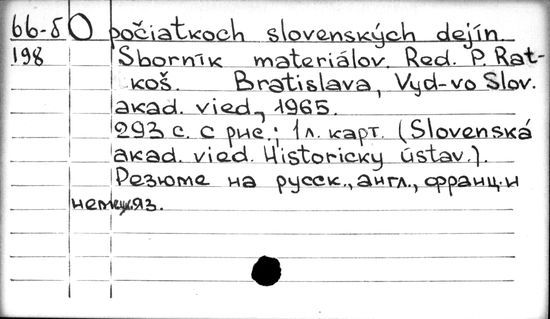 66-5 O počiatkoch slovenských dejín.
198 Sborník materiálov. Red. P. Rat-
koš. Bratislava, Vyd-vo Slov.
akad. vied, 1965.
293 с. с рис.; 1 л. карт. (Slovenská
akad. vied. Historicky ústav.).
Резюме на русск., англ., франц. и
немецк. яз.